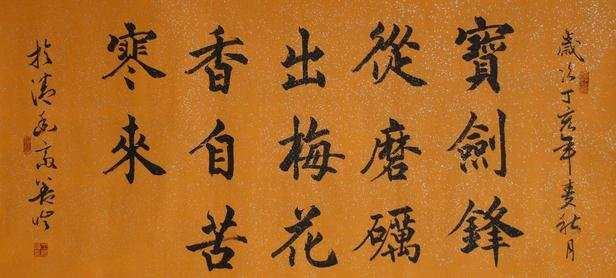 歲次丁亥年秋月
寶劍鋒
從磨礪
出梅花
香自苦
寒來
於清